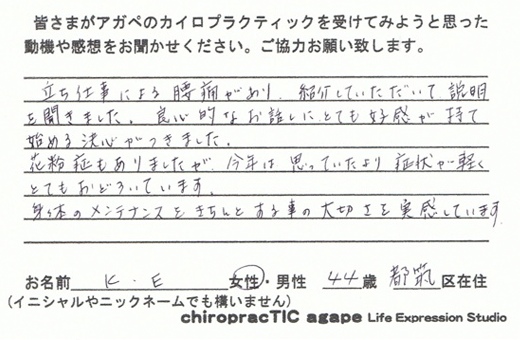 皆さまがアガペのカイロプラクティックを受けてみようと思った
動機や感想をお聞かせください。ご協力お願い致します。
立ち仕事による腰痛があり、紹介していただいて説明
を聞きました。良心的なお話しにとても好感が持て
始める決心がつきました。
花粉症もありましたが、今年は思っていたより症状が軽く
とてもおどろいています。
身体のメンテナンスをきちんとする事の大切さを実感しています
お名前 K.E 女性・男性 44歳 都筑区在住
(イニシャルやニックネームでも構いません)
chiropracTIC agape Life Expression Studio